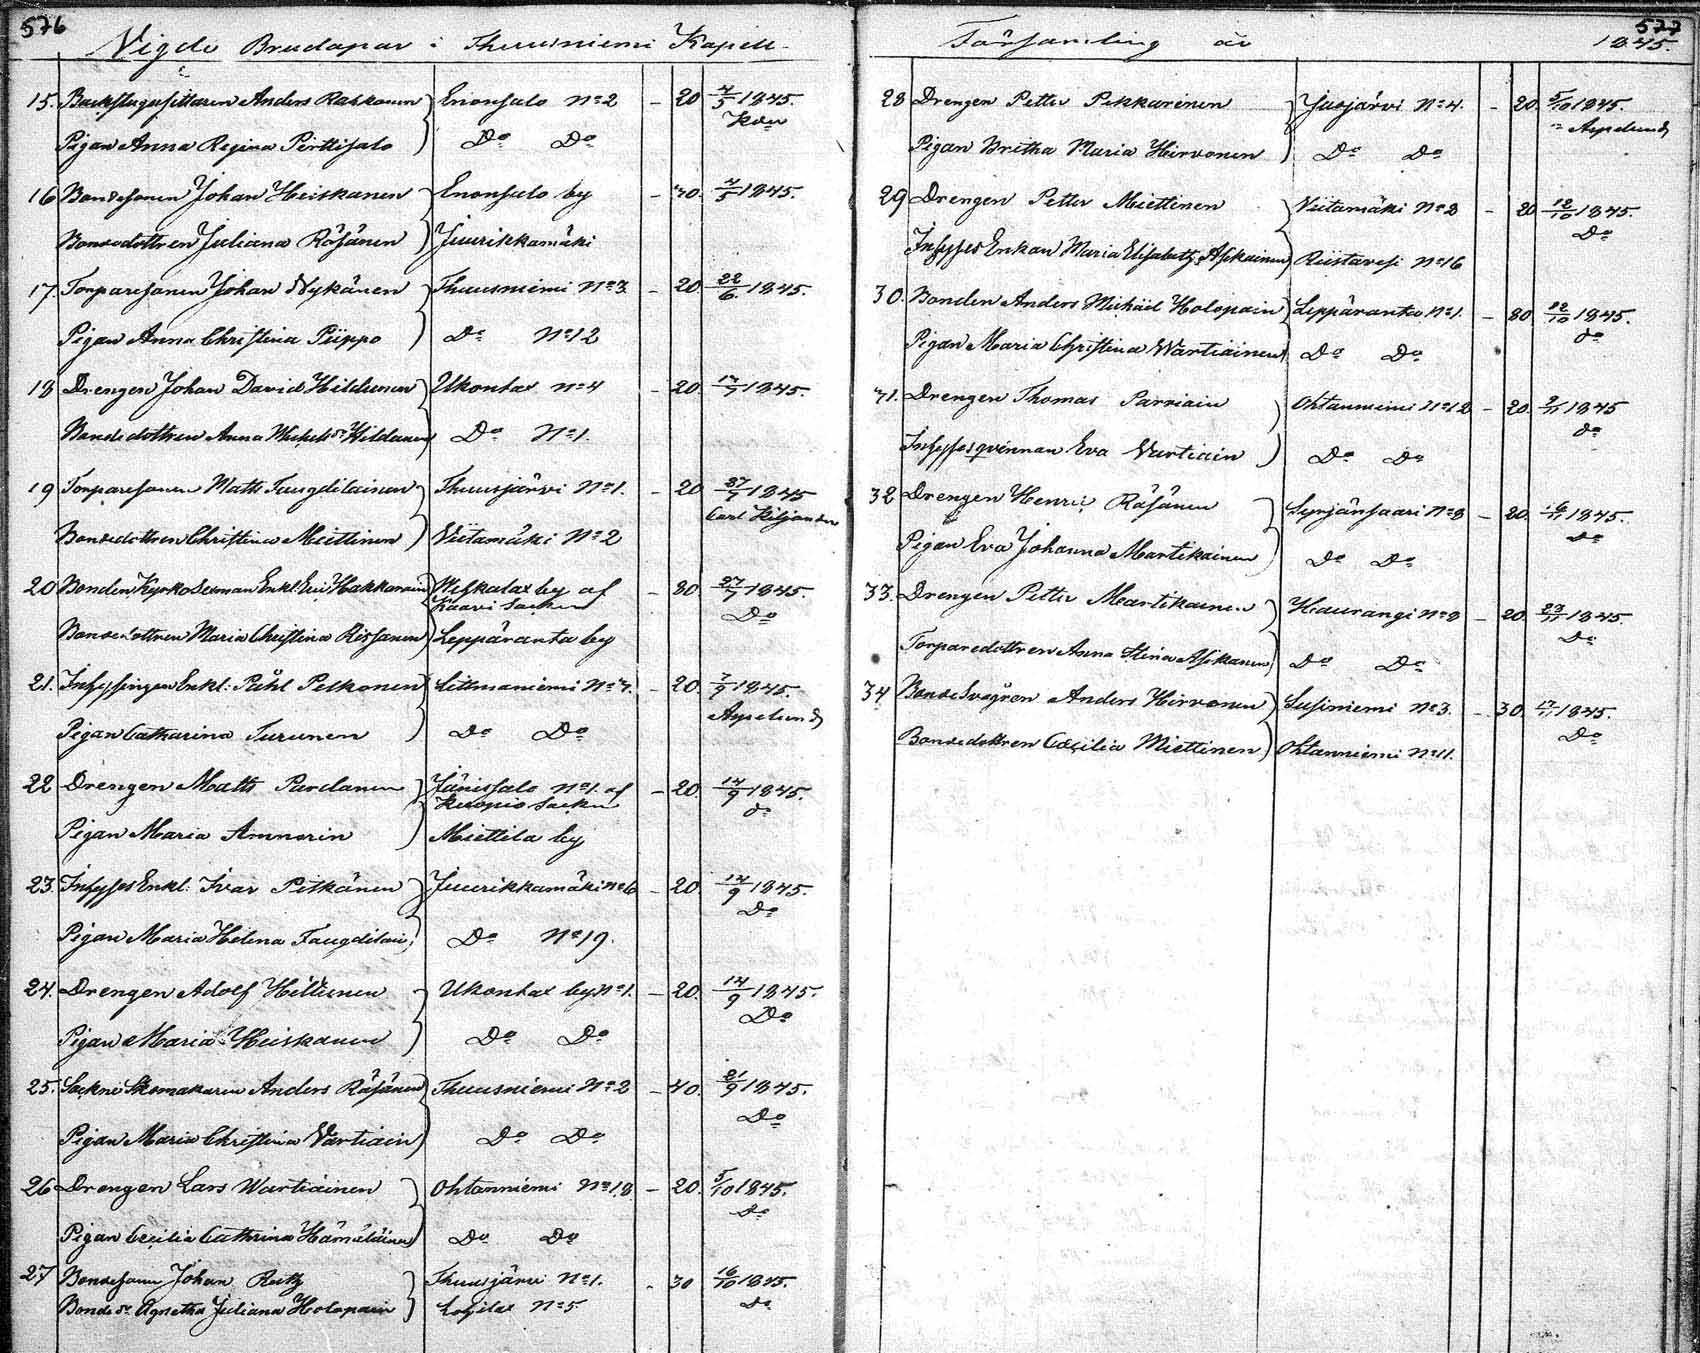 576
Vigde Brudapar i Thuusniemi Kapell-
15. Backstugusittaren Anders Raskonen Enonsalo No 2 - 20 4/5 1845.
Pigan Anna Regina Pirttisalo Do Do
16 Bondesonen Johan Heiskanen Enonsalo by - 40. 4/5 1845.
Bondedottren Juliana Räsänen Juurikkamäki
17. Torparesonen Johan Nykänen Thuusniemi No 3 - 20. 22/6 1845.
Pigan Anna Christina Piippo Do No 12
18 Drengen Johan David Hildunen Ukontax No 4 - 20. 1845.
Bondedottren Anna Do No 1.
19 Torparesonen Matts Taugdilainen Thuusjärvi No 1. - 20 27/7 1845
Carl Kiljander
Bondedottren Christina Miettinen Viitamäki No 2
20 Bonden, Kyrko Sexman Enkl. Eric Hakkarain by af - 80. 27/7 1845.
Kaavi Socken Do
Bondedottren Maria Christina Rissanen Leppäranta by
21. Inhyssingen Enkl: Påhl Pelkonen Litmaniemi No - 20. 7/9 1845.
Aspelund
Pigan Catharina Turunen Do Do
22 Drengen Matts Pardanen Jänissalo No 1. af - 20. 14/9 1845.
Kuopio Socken do
Pigan Maria Ammorin Miettila by
23. Inhyses Enkl: Ivar Pitkänen Juurikkamäki No 6 - 20. 14/9 1845.
Do
Pigan Maria Helena Taugdilain Do No 19.
24. Drengen Adolf Hiltunen Ukontax by No 1. - 20. 14/9 1845.
Do
Pigan Maria Heiskanen Do Do
25. Sockne Skomakaren Anders Räsänen Thuusniemi No 2 - 40. 21/9 1845.
Do
Pigan Maria Christina Vartiain Do Do
26 Drengen Lars Wartiainen Ohtanniemi No 18 - 20. 5/10 1845.
Do
Pigan Cecilia Cathrina Hämäläinen Do Do
27 Bondesonen Johan Reitz Thuusjärvi No 1. - 30 1845.
Bonde Dr Agnetha Juliana Holopain No 5 Do
577
Församling år 1845.
28 Drengen Petter Pekkarinen Juojärvi No 4. - 20. 5/10 1845.
Aspelund
Pigan Britha Maria Hirvonen Do Do
29 Drengen Petter Miettinen Viitamäki No 2 - 20 12/10 1845.
Do
Inhyses Enkan Maria Elisabeth Asikainen Riistavesi No 16
30. Bonden Anders Michäel Holopain Leppäranta No 1. - 80 12/10 1845.
do
Pigan Maria Christina Wartiainen Do Do
31. Drengen Thomas Parviain Ohtanniemi No 12 - 20. 1845
do
Inhyses qvinnan Eva Vartiain Do Do
32 Drengen Henric Räsänen Syrjänsaari No 8 - 20. 16/11 1845.
Do
Pigan Eva Johanna Martikainen Do Do
33. Drengen Petter Martikainen Kaurangi No 8 - 20. 23/11 1845.
Do
Torparedottren Anna Stina Asikanen Do Do
34 Bonde Svågren Anders Hirvonen Susiniemi No 3. - 30. 1845.
Do
Bondedottren Cæcilia Miettinen Ohtanniemi No 11.